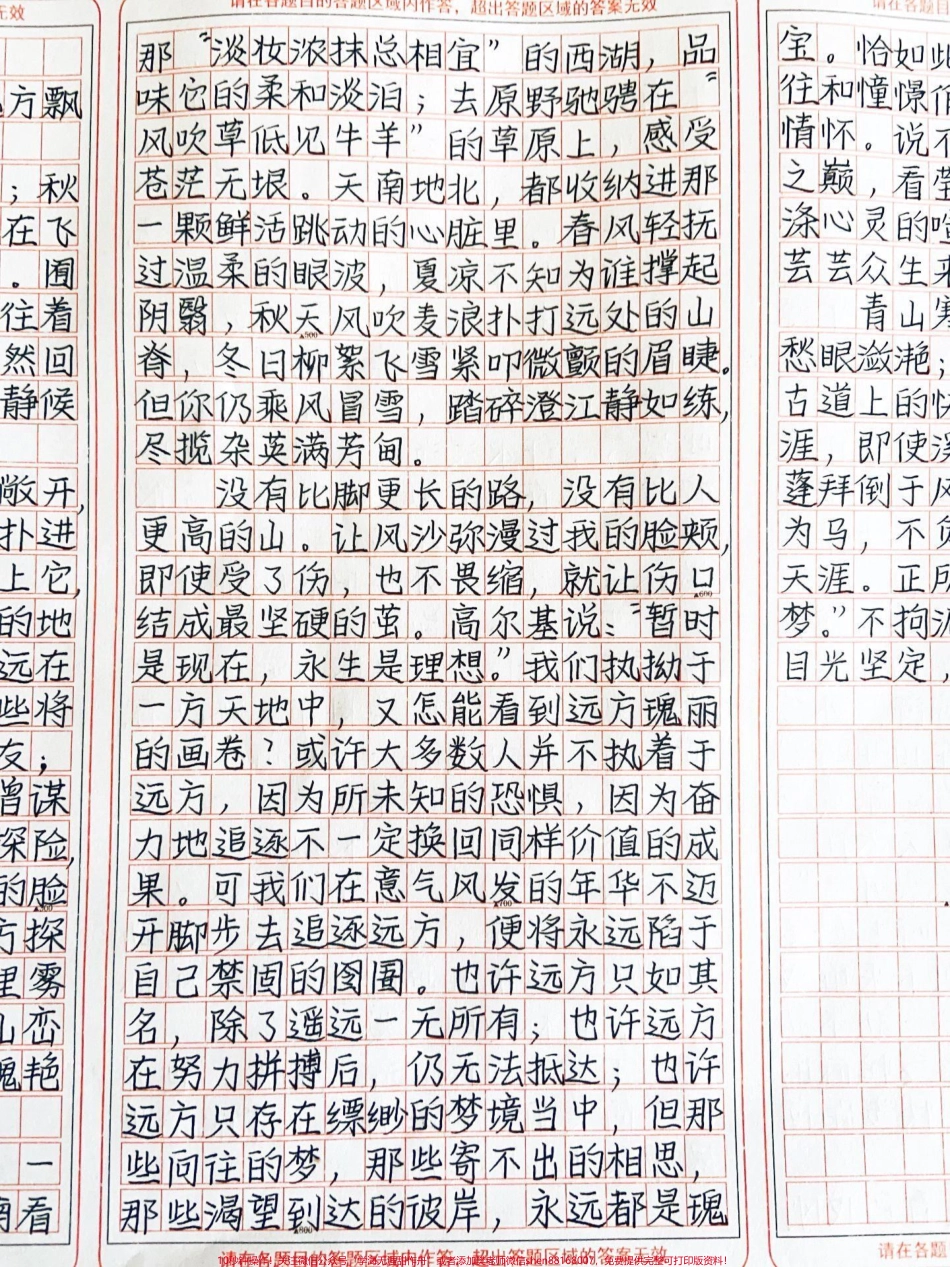 无效
方飘
；秋
在飞
。囿
往着
然回
静候
敞开，
扑进
上它，
的地
远在
些将
友；
曾谋
探险，
的脸
方探
里雾
山峦
瑰艳
一
看
请在各题目的答题区域内作答，超出答题区域的答案无效
那“淡妆浓抹总相宜”的西湖，品
味它的柔和淡泊；去原野驰骋在“
风吹草低见牛羊”的草原上，感受
苍茫无垠。天南地北，都收纳进那
一颗鲜活跳动的心脏里。春风轻抚
过温柔的眼波，夏凉不知为谁撑起
阴翳，秋天风吹麦浪扑打远处的山
▲500
脊，冬日柳絮飞雪紧叩微颤的眉睫。
但你仍乘风冒雪，踏碎澄江静如练，
尽揽杂英满芳甸。
没有比脚更长的路，没有比人
更高的山。让风沙弥漫过我的脸颊，
即使受了伤，也不畏缩，就让伤口
▲600
结成最坚硬的茧。高尔基说：“暂时
是现在，永生是理想。”我们执拗于
一方天地中，又怎能看到远方瑰丽
的画卷？或许大多数人并不执着于
远方，因为所未知的恐惧，因为奋
力地追逐不一定换回同样价值的成
果。可我们在意气风发的年华不迈
▲700
开脚步去追逐远方，便将永远陷于
自己禁固的图圄。也许远方只如其
名，除了遥远一无所有；也许远方
在努力拼搏后，仍无法抵达；也许
远方只存在缥缈的梦境当中，但那
些向往的梦，那些寄不出的相思，
那些渴望到达的彼岸，永远都是瑰
▲800
请在各题目的答题区域内作答，超出答题区域的答案无效
请在各题目
宝。恰如此
往和憧憬
情怀。说不
之巅，看
涤心灵的
芸芸众生
青山
愁眼潋滟；
古道上的
涯，即使
蓬拜倒于风
为马，不负
天涯。正
梦。”不拘
目光坚定，
请在各题